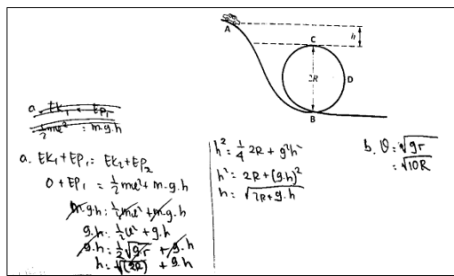 A
h
C
2R
D
B
a. Ek₁ = EP₁
½mv² = m.g.h
a. EK₁ + EP₁ = EK₂ + EP₂
0 + EP₁ = ½mv² + m.g.h
m.g.h = ½mv² + m.g.h
g.h = ½v² + g.h
g.h = ½√gr + g.h
h = √(2R) + g.h
h² = ¼ 2R + g²h²
h² = 2R + (g.h)²
h = √2R + g.h
b. v = √gr
= √10R